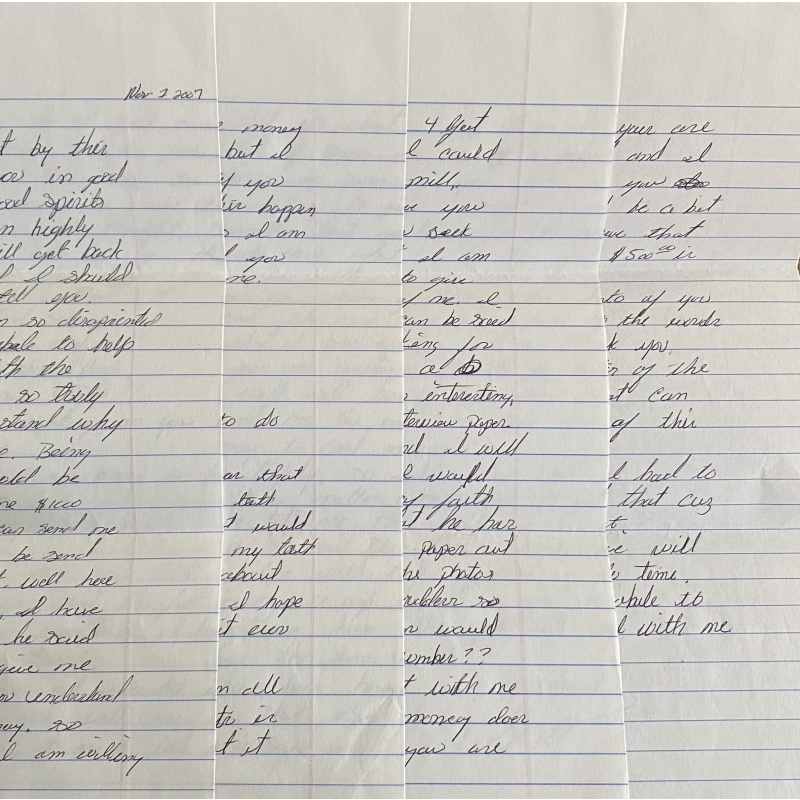 Nov 2 2007
t by this
ow in good
ood spirits
n highly
ill get back
l I should
tell you.
n so disapointed
able to help
th the
so truly
stand why
e. Being
old be
me $1000
can send me
be send
t. well here
, I have
he said
give me
ow understand
ney. so
I am willing
money
but I
if you
his happen
I am
you
me.
to do
or that
tath
t would
my tath
about
I hope
it ever
n all
ts is
t it
4 feet
I could
mill,
you
seek
I am
to give
of me. I
can be sreed
king for
a
interesting,
terview paper
nd I will
I would
my faith
t he has
paper out
he photos
so
would
umber??
t with me
money does
you are
your are
and I
you
be a bit
ave that
$500.00 is
to of you
the words
k you.
n of the
t can
of this
I had to
that cuz
t.
e will
time.
while to
l with me